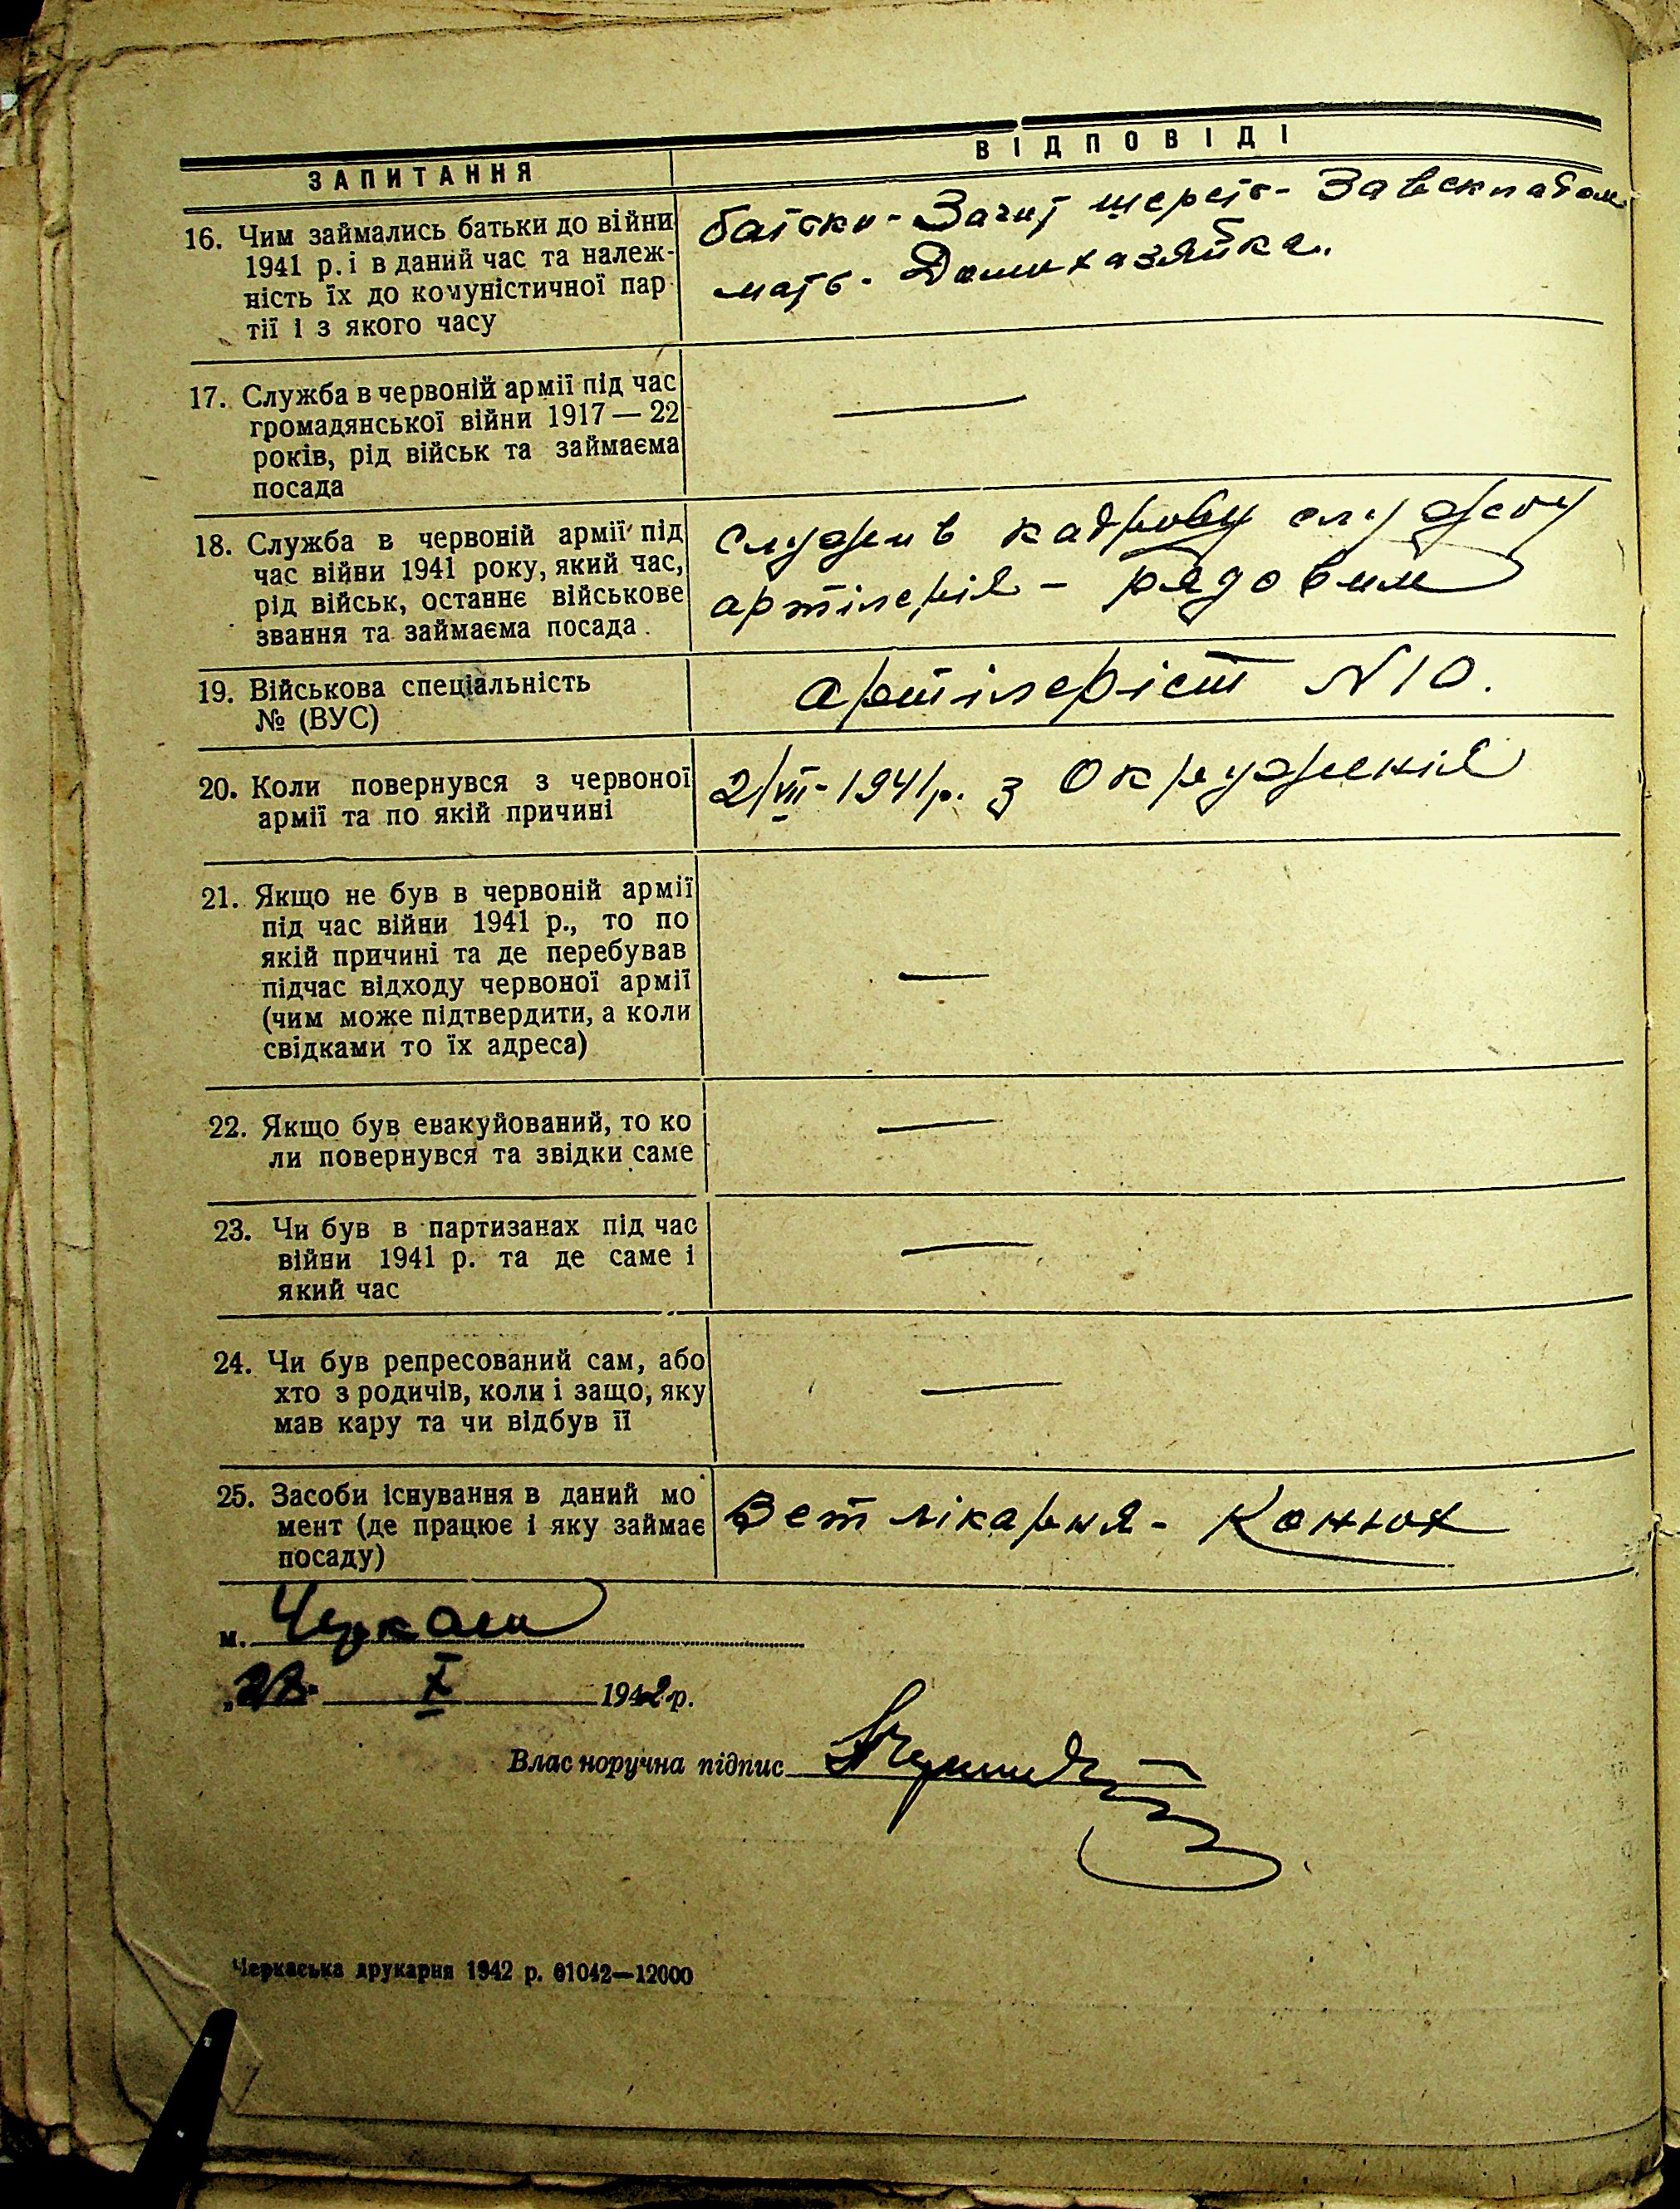 ЗАПИТАННЯ
ВІДПОВІДІ
16. Чим займались батьки до війни
1941 р. і в даний час та належ-
ність їх до комуністичної пар-
тії і з якого часу
батьки - шерсть -
мать - Домохазяйка.
17. Служба в червоній армії під час
громадянської війни 1917 — 22
років, рід військ та займаєма
посада
—
18. Служба в червоній армії під
час війни 1941 року, який час,
рід військ, останнє військове
звання та займаєма посада.
Служив кадрову службу
артілерія - рядовим
19. Військова спеціальність
№ (ВУС)
артілеріст №10.
20. Коли повернувся з червоної
армії та по якій причині
2/VIII-1941р. з Окруженія
21. Якщо не був в червоній армії
під час війни 1941 р., то по
якій причині та де перебував
підчас відходу червоної армії
(чим може підтвердити, а коли
свідками то їх адреса)
—
22. Якщо був евакуйований, то ко
ли повернувся та звідки саме
—
23. Чи був в партизанах під час
війни 1941 р. та де саме і
який час
—
24. Чи був репресований сам, або
хто з родичів, коли і защо, яку
мав кару та чи відбув її
—
25. Засоби існування в даний мо
мент (де працює і яку займає
посаду)
Вет лікарня - Конюх
м. Черкаси
„28" X 1942 р.
Власноручна підпис
Черкаська друкарня 1942 р. 01042—12000